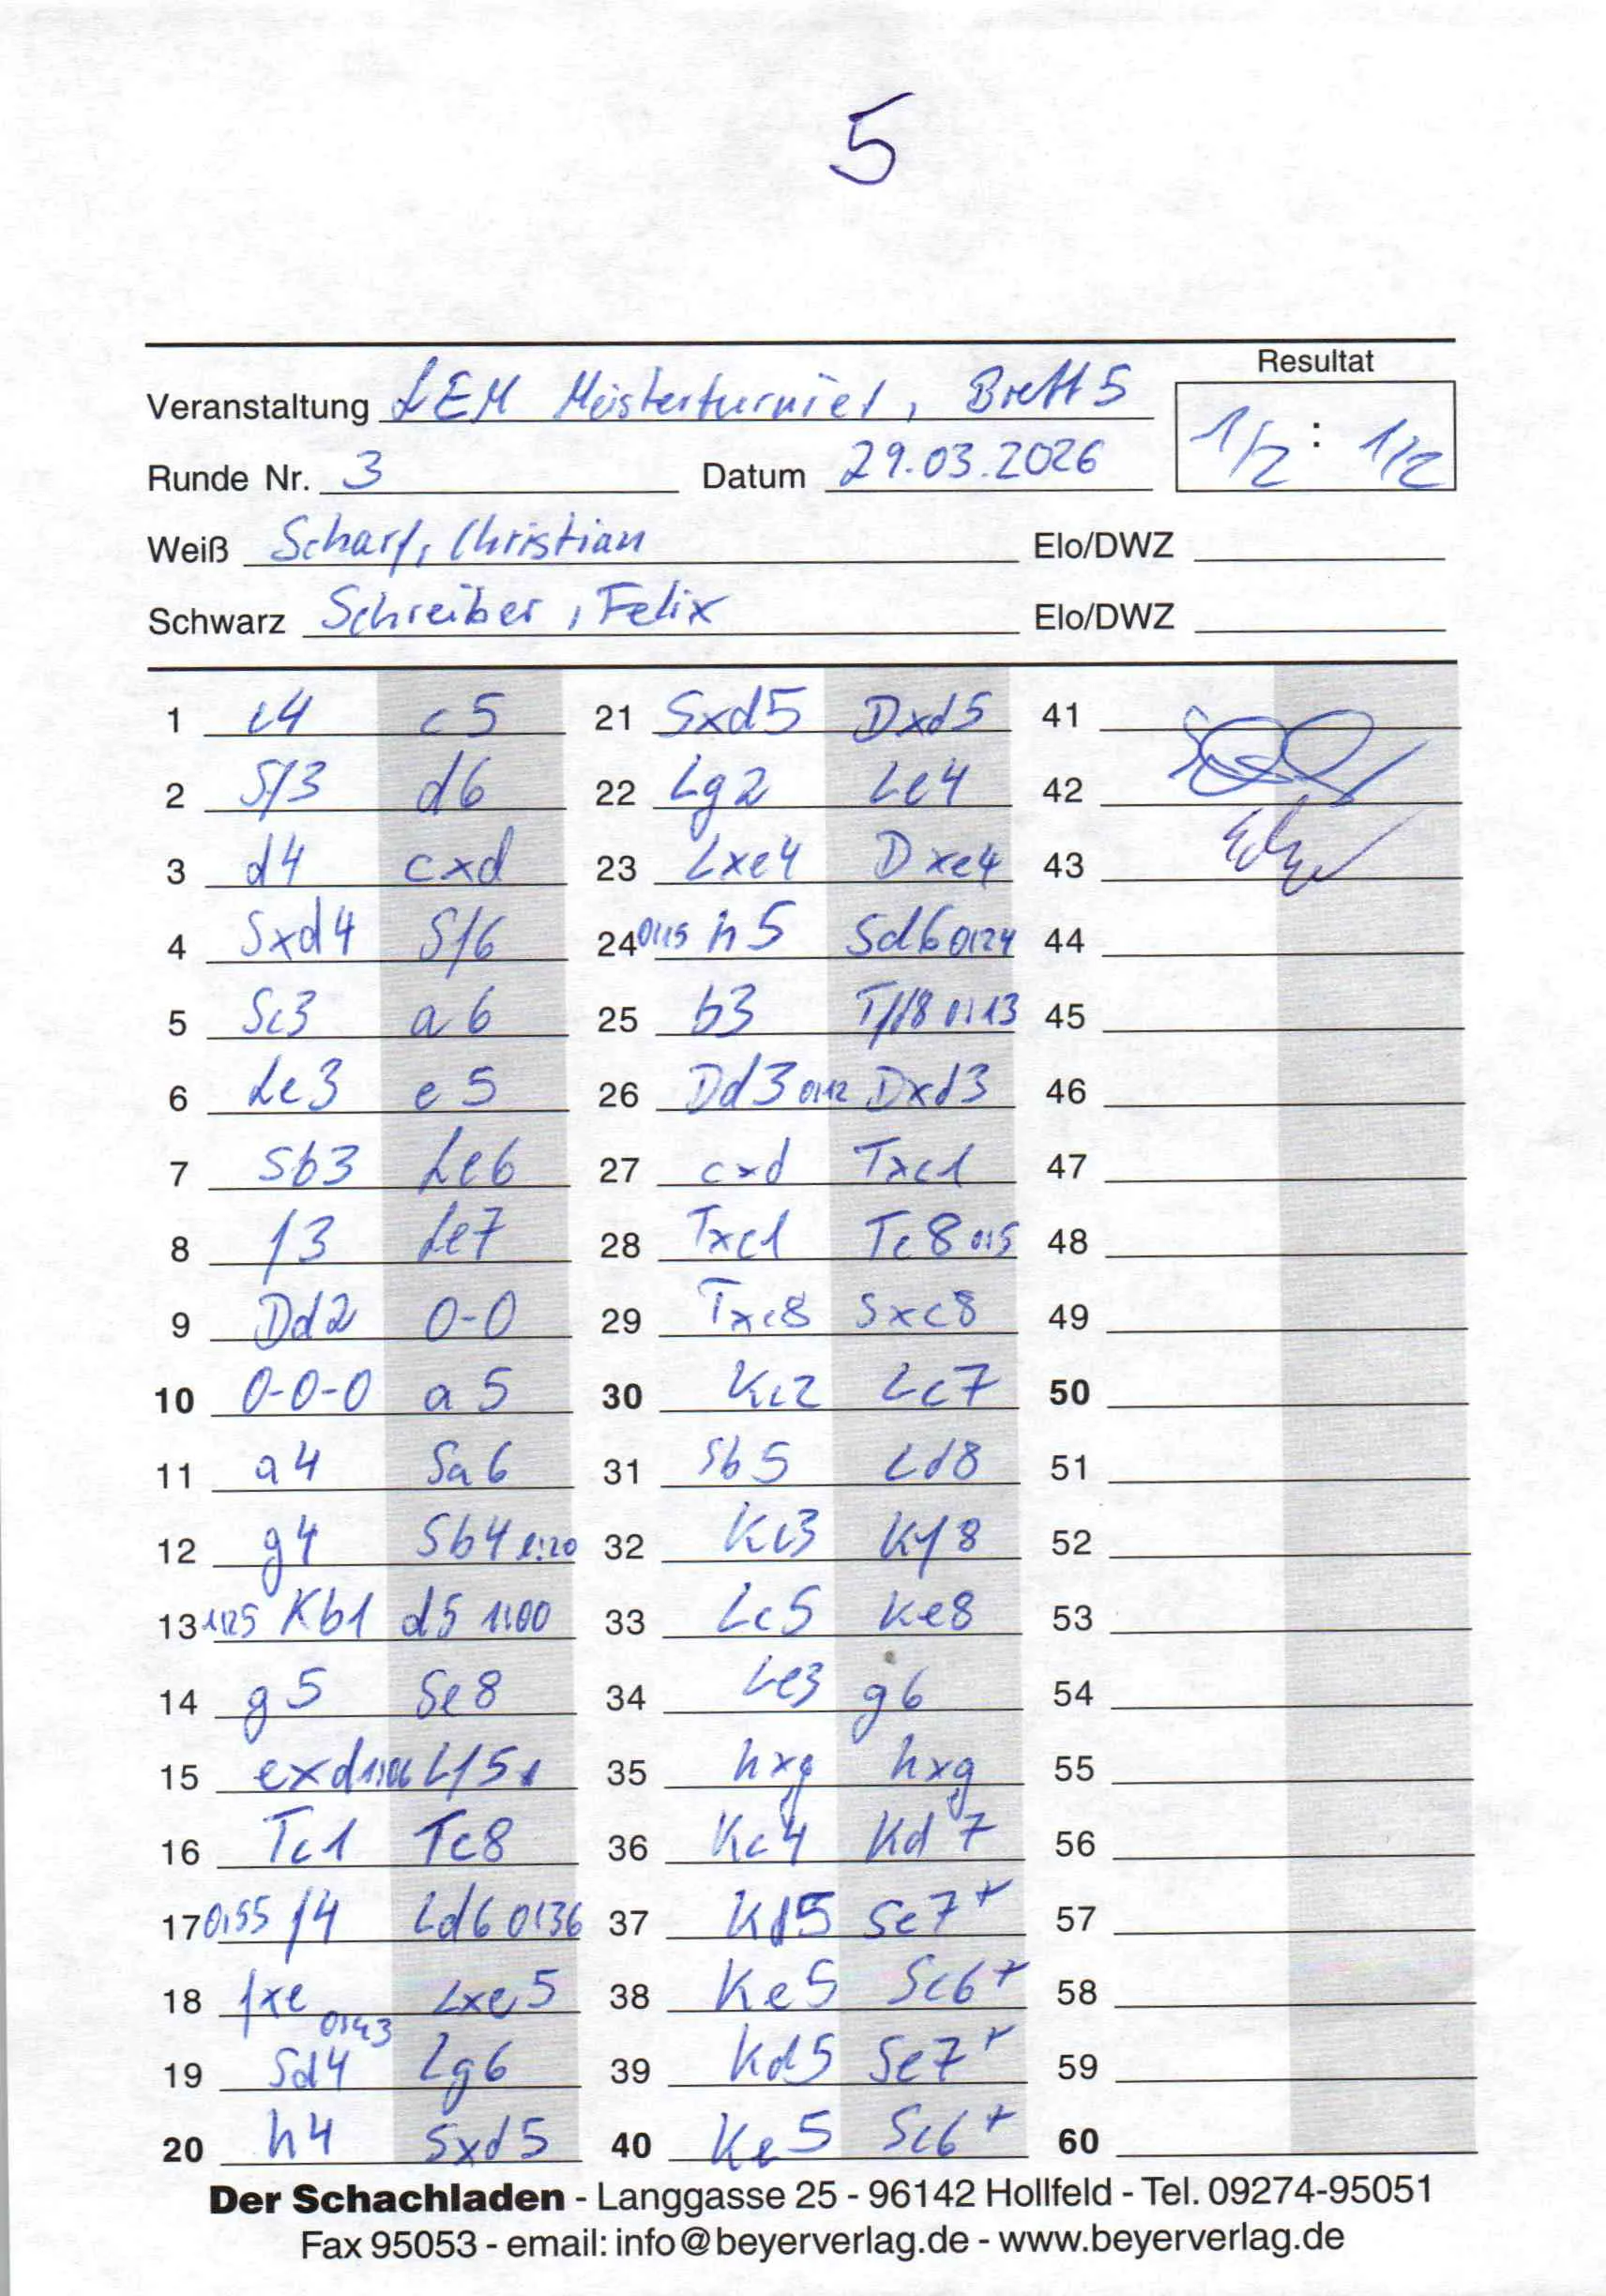 5
Resultat
Veranstaltung LEM Meisterturnier, Brett 5
1/2 : 1/2
Runde Nr. 3 Datum 29.03.2026
Weiß Scharf, Christian Elo/DWZ
Schwarz Schreiber, Felix Elo/DWZ
1 e4 c5 21 Sxd5 Dxd5 41
2 Sf3 d6 22 Lg2 Le4 42
3 d4 cxd 23 Lxe4 Dxe4 43
4 Sxd4 Sf6 24 0:15 h5 Sd6 0:24 44
5 Sc3 a6 25 b3 Tfd8 0:13 45
6 Le3 e5 26 Dd3 0:12 Dxd3 46
7 Sb3 Le6 27 cxd Txc1 47
8 f3 Le7 28 Txc1 Tc8 0:5 48
9 Dd2 0-0 29 Txc8 Sxc8 49
10 0-0-0 a5 30 Kc2 Lc7 50
11 a4 Sa6 31 Sb5 Ld8 51
12 g4 Sb4 1:20 32 Kc3 Kf8 52
13 1:25 Kb1 d5 1:00 33 Lc5 Ke8 53
14 g5 Se8 34 Le3 g6 54
15 exd 1:06 Lf5 35 hxg hxg 55
16 Tc1 Tc8 36 Kc4 Kd7 56
17 0:55 f4 Ld6 0:36 37 Kd5 Se7+ 57
18 fxe 0:43 Lxe5 38 Ke5 Sc6+ 58
19 Sd4 Lg6 39 Kd5 Se7+ 59
20 h4 Sxd5 40 Ke5 Sc6+ 60
Der Schachladen - Langgasse 25 - 96142 Hollfeld - Tel. 09274-95051
Fax 95053 - email: info@beyerverlag.de - www.beyerverlag.de